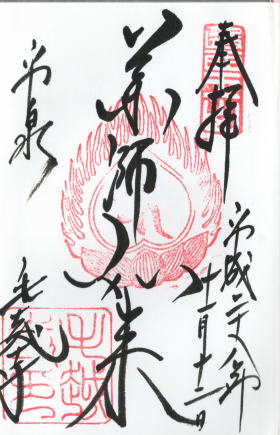 奉拝
平成二十八年
十一月十二日
薬師如来
平泉
毛越寺